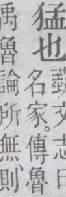 猛也
藝文志曰
名家。傳魯
禹魯論所無則